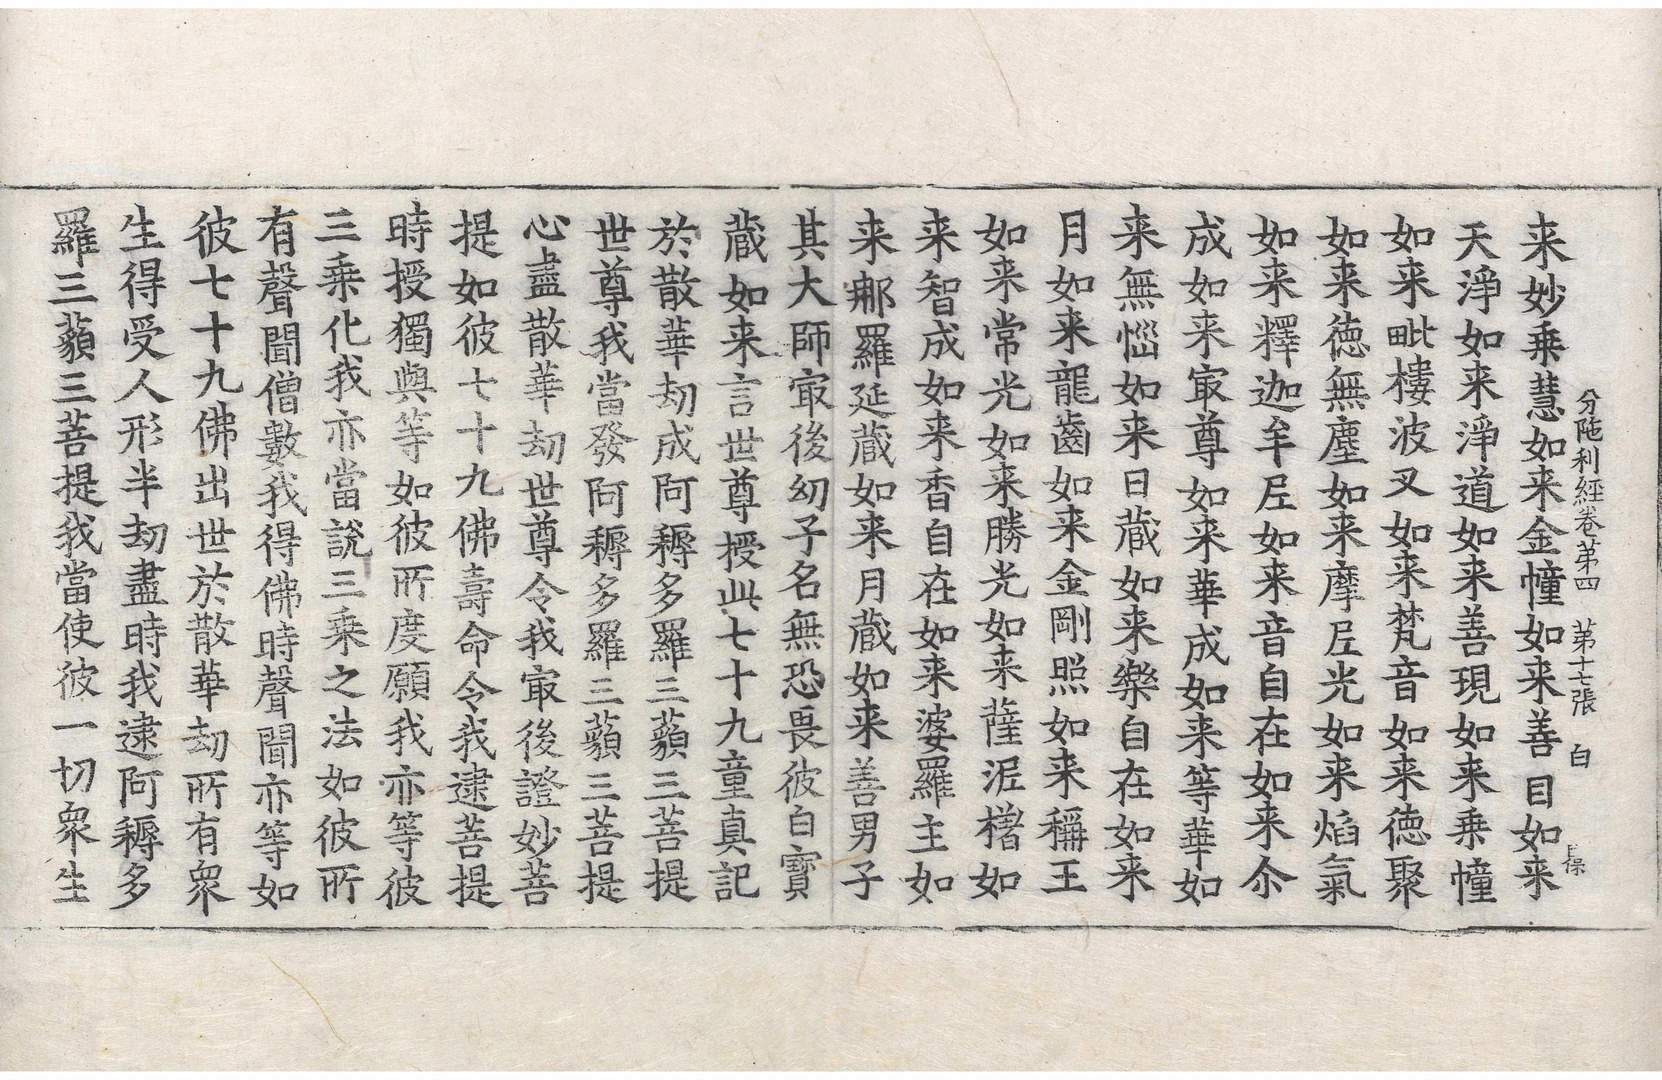 分陁利經卷第四　第十七張　白
来妙乗慧如来金幢如来善目如来
天淨如来淨道如来善現如来乗幢
如来毗樓波叉如来梵音如来徳聚
如来徳無塵如来摩𡰱光如来焰氣
如来釋迦牟𡰱如来音自在如来尒
成如来㝡尊如来華成如来等華如
来無惱如来日蔵如来樂自在如来
月如来龍齒如来金剛照如来稱王
如来常光如来勝光如来薩泥橎如
来智成如来香自在如来婆羅主如
来𨚗羅延蔵如来月蔵如来善男子
其大師㝡後㓜子名無恐畏彼白寳
蔵如来言世尊授此七十九童真記
於散華劫成阿耨多羅三藐三菩提
世尊我當發阿耨多羅三藐三菩提
心盡散華劫世尊令我㝡後證妙菩
提如彼七十九佛壽命令我逮菩提
時授獨與等如彼所度願我亦等彼
三乗化我亦當說三乗之法如彼所
有聲聞僧數我得佛時聲聞亦等如
彼七十九佛出世於散華劫所有衆
生得受人形半劫盡時我逮阿耨多
羅三藐三菩提我當使彼一切衆生